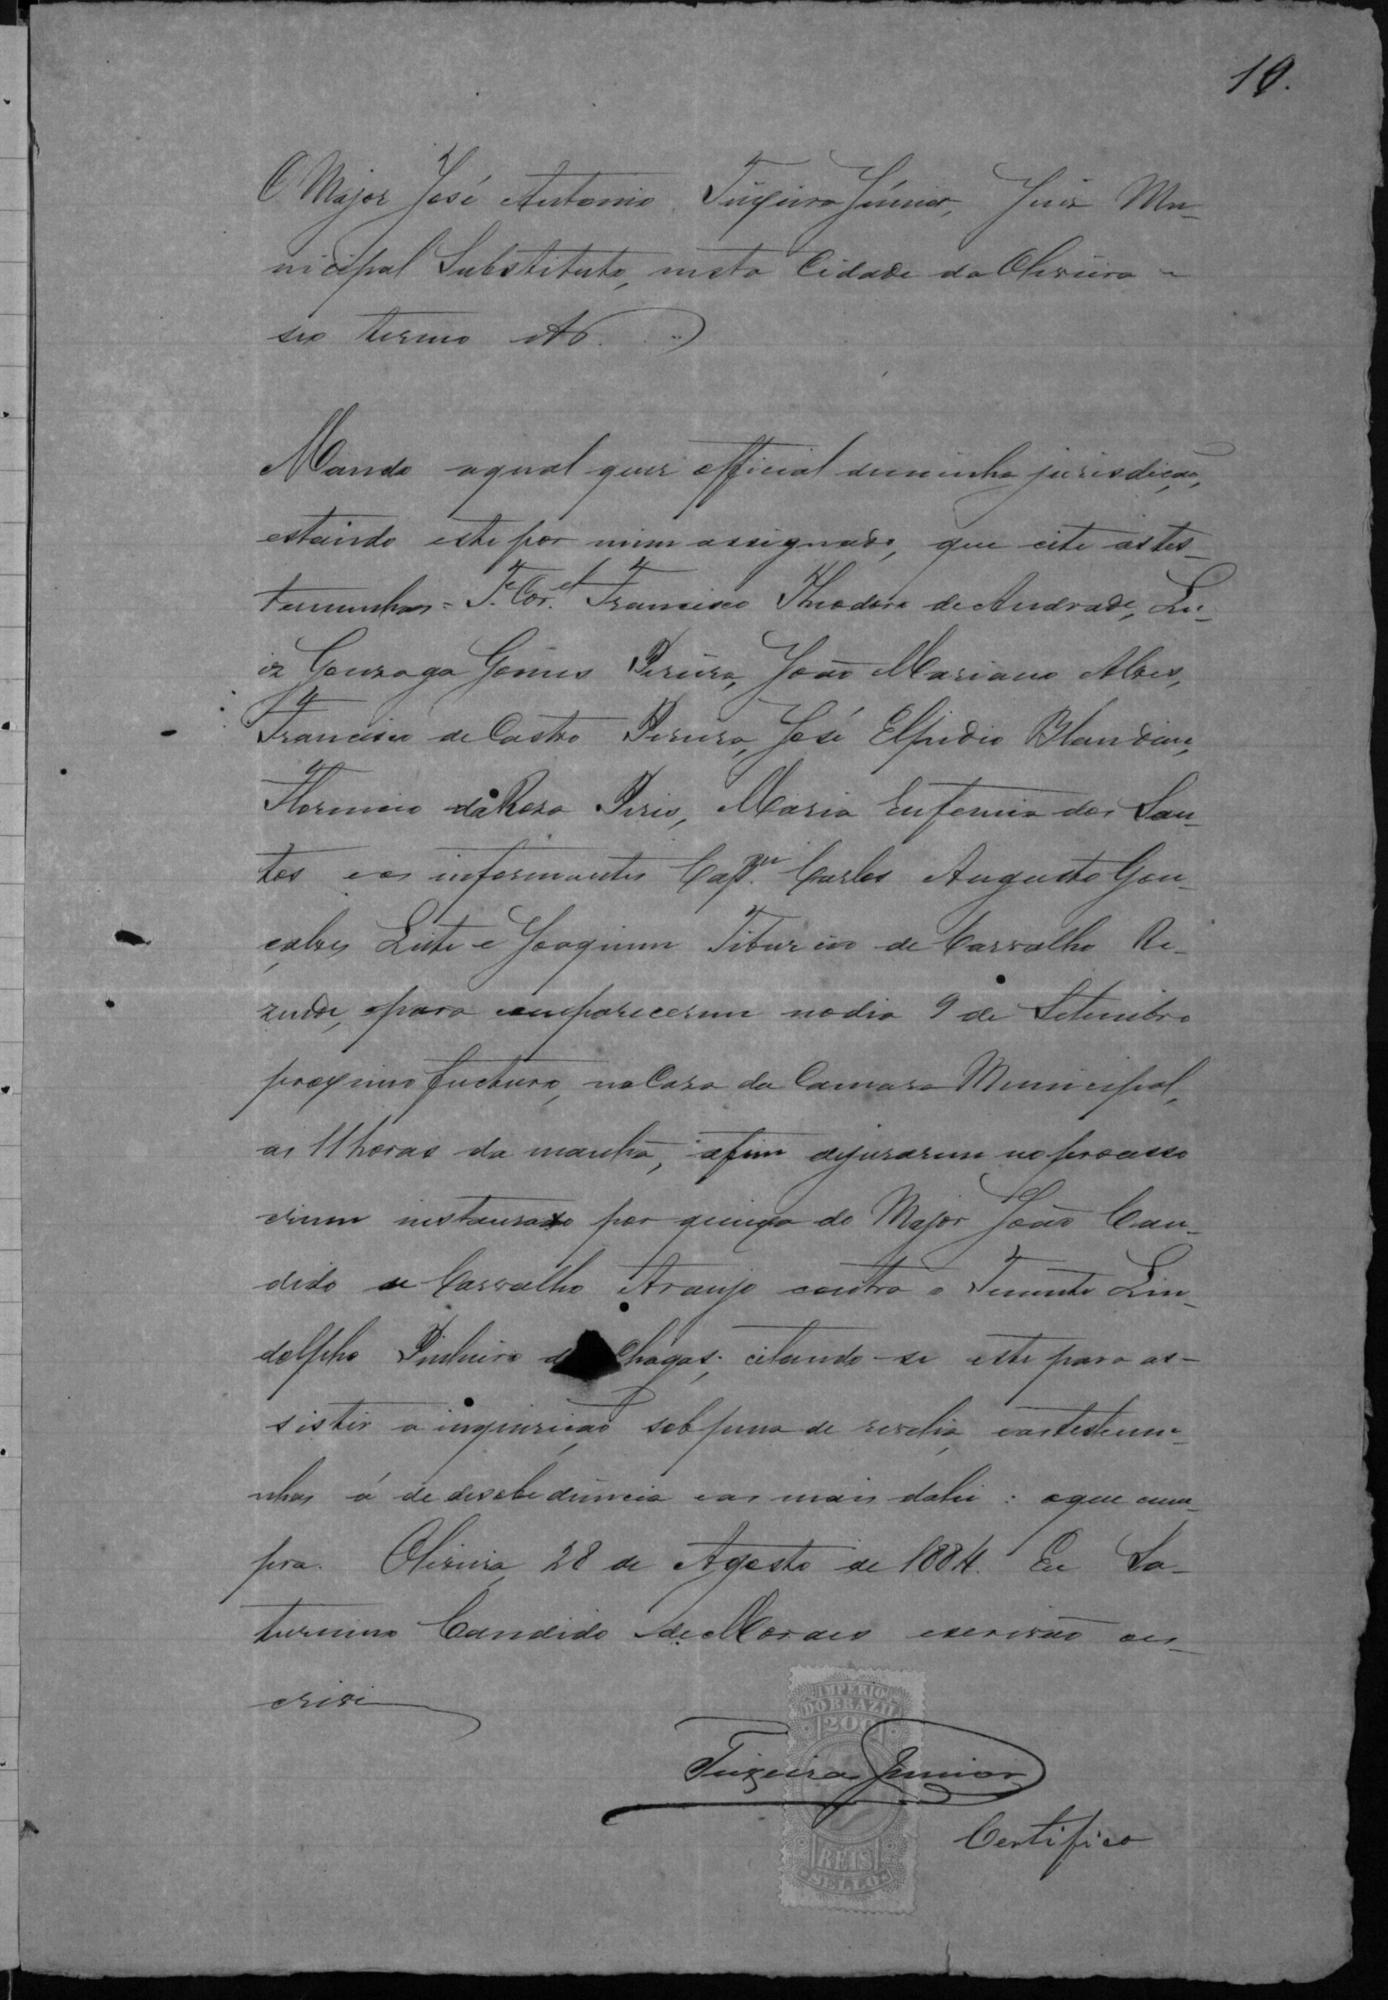 10.
O Major José Antonio Teixeira Júnior, Juiz Mu-
nicipal Substituto, nesta Cidade da Oliveira e
seo termo etc.
Mando aqual quer official deminha jurisdicção,
estando este por mim assignado, que cite as tes-
temunhas = Te. Cor.el Francisco Theodoro de Andrade, Lu-
iz Gonzaga Gomes Pereira, João Mariano Alves,
Francisco de Castro Pereira, José Elpidio Blandim,
Florencio da Roza Pires, Maria Eufemia dos San-
tos e os informantes Cap.m Carlos Augusto Gon-
çalves Leite e Joaquim Tiburcio de Carvalho Re-
zende, para comparecerem no dia 9 de Setembro
proximo fucturo, na Casa da Camara Municipal,
as 11 horas da manhã, afim dejurarem no processo
crime instaurado por queixa do Major João Can-
dido de Carvalho Araujo contra o Tenente Lin-
dolpho Pinheiro das Chagas; citando-se este para as-
sistir a inquirição sob pena de revelia, e as testemu-
nhas á de desobediencia e as mais da lei : o que cum-
pra. Oliveira 28 de Agosto de 1884. Eu Sa-
turnino Candido de Moraes escrivão o es-
crivi
IMPERIO
DO BRAZIL
200
Teixeira Junior
REIS
SELLO
Certifico